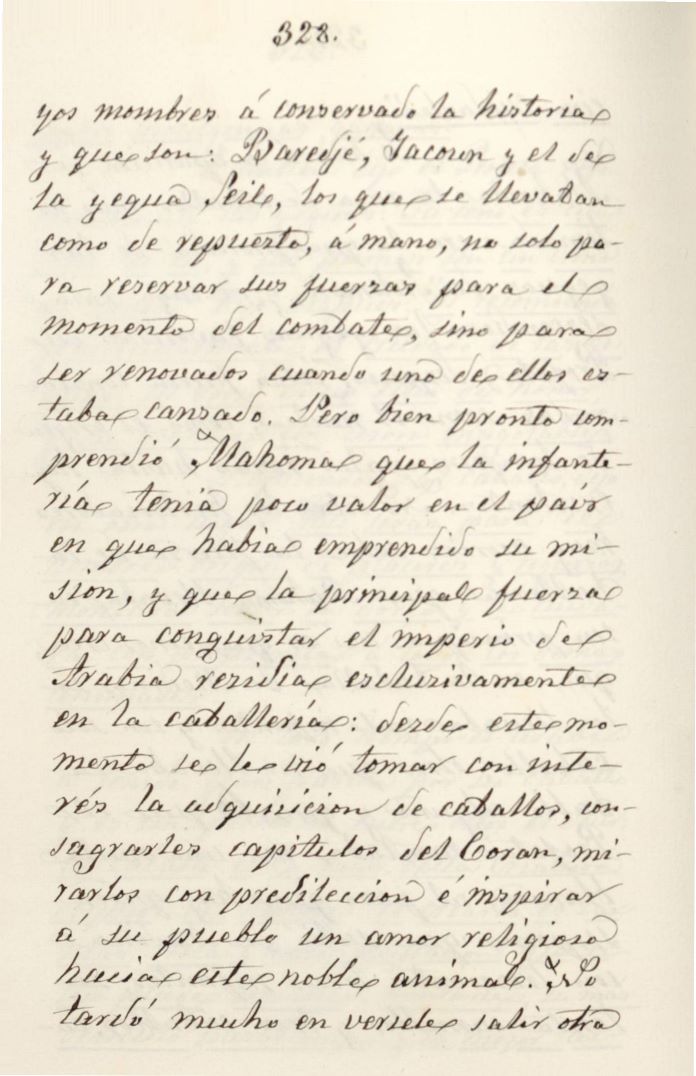 328.
yos nombres á conservado la historia
y que son: Baredjé, Jacoun y el de
la yegua Seil, los que se llevaban
como de repuesto, á mano, no solo pa-
ra reservar sus fuerzas para el
momento del combate, sino para
ser renovados cuando uno de ellos es-
taba cansado. Pero bien pronto com-
prendió Mahoma que la infante-
ría tenia poco valor en el pais
en que habia emprendido su mi-
sion, y que la principal fuerza
para conquistar el imperio de
Arabia residia esclusivamente
en la caballería: desde este mo-
mento se le vió tomar con inte-
rés la adquisicion de caballos, con-
sagrarles capitulos del Coran, mi-
rarlos con predileccion é inspirar
á su pueblo un amor religioso
hacia este noble animal. No
tardó mucho en versele salir otra